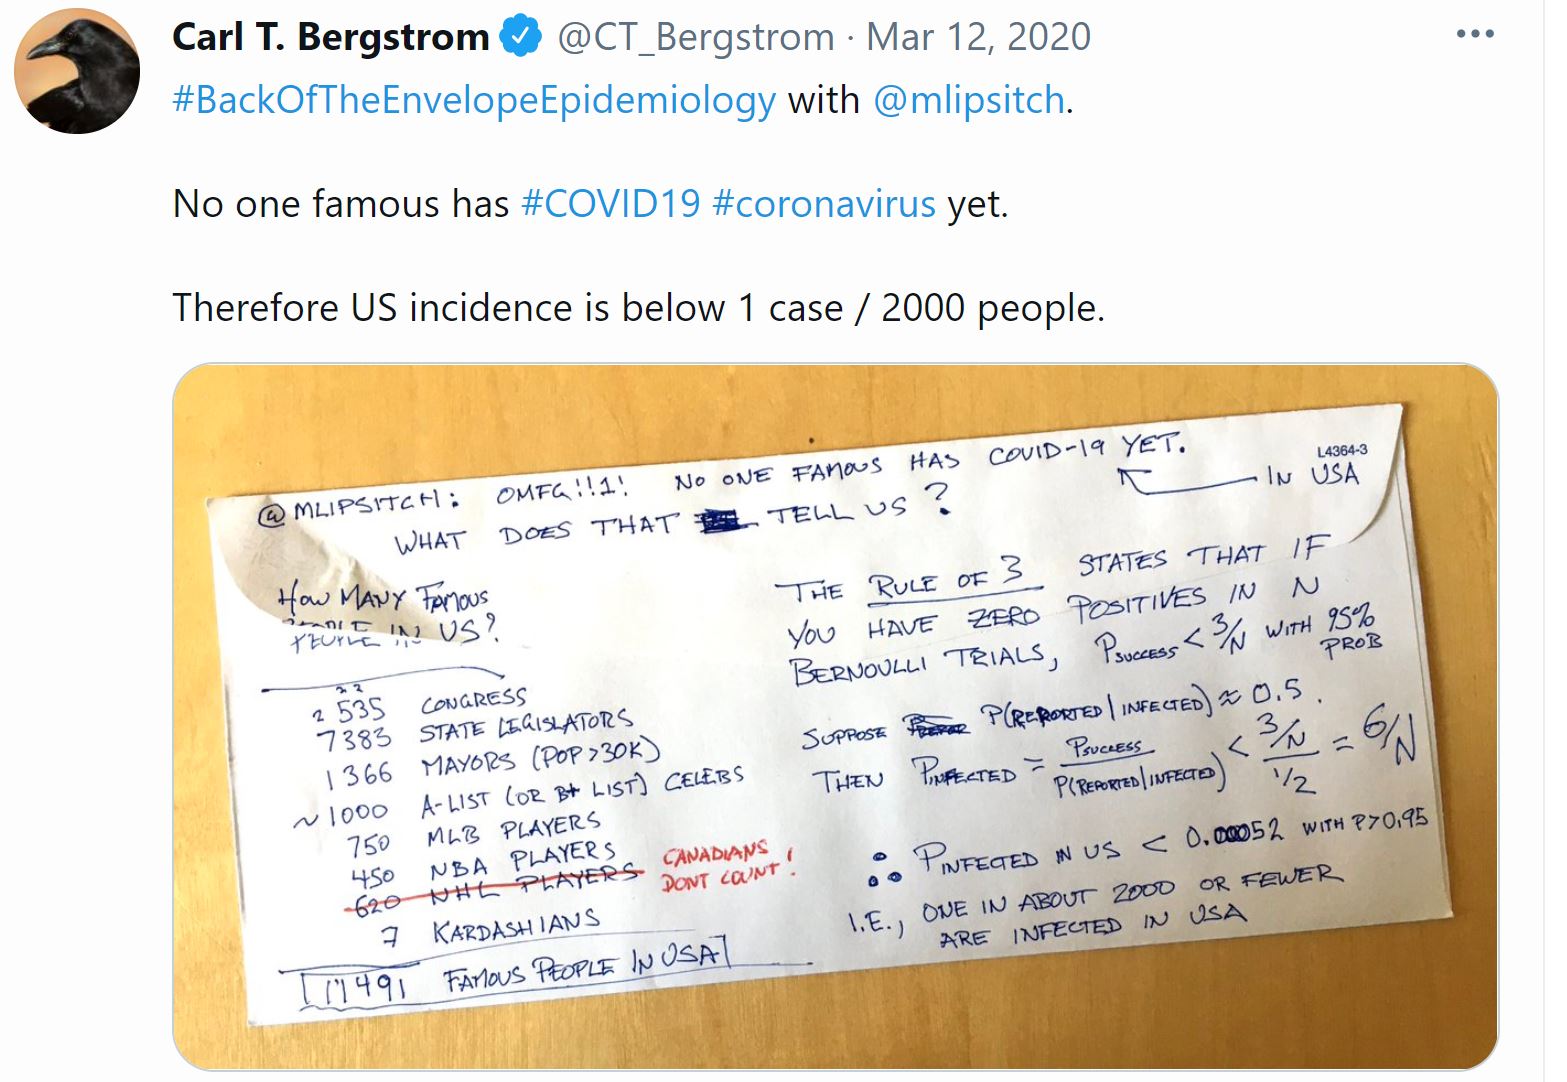 Carl T. Bergstrom @CT_Bergstrom · Mar 12, 2020
#BackOfTheEnvelopeEpidemiology with @mlipsitch.
No one famous has #COVID19 #coronavirus yet.
Therefore US incidence is below 1 case / 2000 people.
L4364-3
@MLIPSITCH: OMFG!!1! NO ONE FAMOUS HAS COVID-19 YET.
IN USA
WHAT DOES THAT TELL US?
HOW MANY FAMOUS
PEOPLE IN US?
535 CONGRESS
7383 STATE LEGISLATORS
1366 MAYORS (POP>30K)
~1000 A-LIST (OR B+ LIST) CELEBS
750 MLB PLAYERS
450 NBA PLAYERS
620 NHL PLAYERS
CANADIANS
DONT COUNT!
7 KARDASHIANS
11491 FAMOUS PEOPLE IN USA
THE RULE OF 3 STATES THAT IF
YOU HAVE ZERO POSITIVES IN N
BERNOULLI TRIALS, PSUCCESS < 3/N WITH 95%
PROB
SUPPOSE P(REPORTED|INFECTED) ≈ 0.5.
THEN PINFECTED = PSUCCESS / P(REPORTED|INFECTED) < 3/N / 1/2 = 6/N
∴ PINFECTED IN US < 0.00052 WITH P>0.95
I.E., ONE IN ABOUT 2000 OR FEWER
ARE INFECTED IN USA